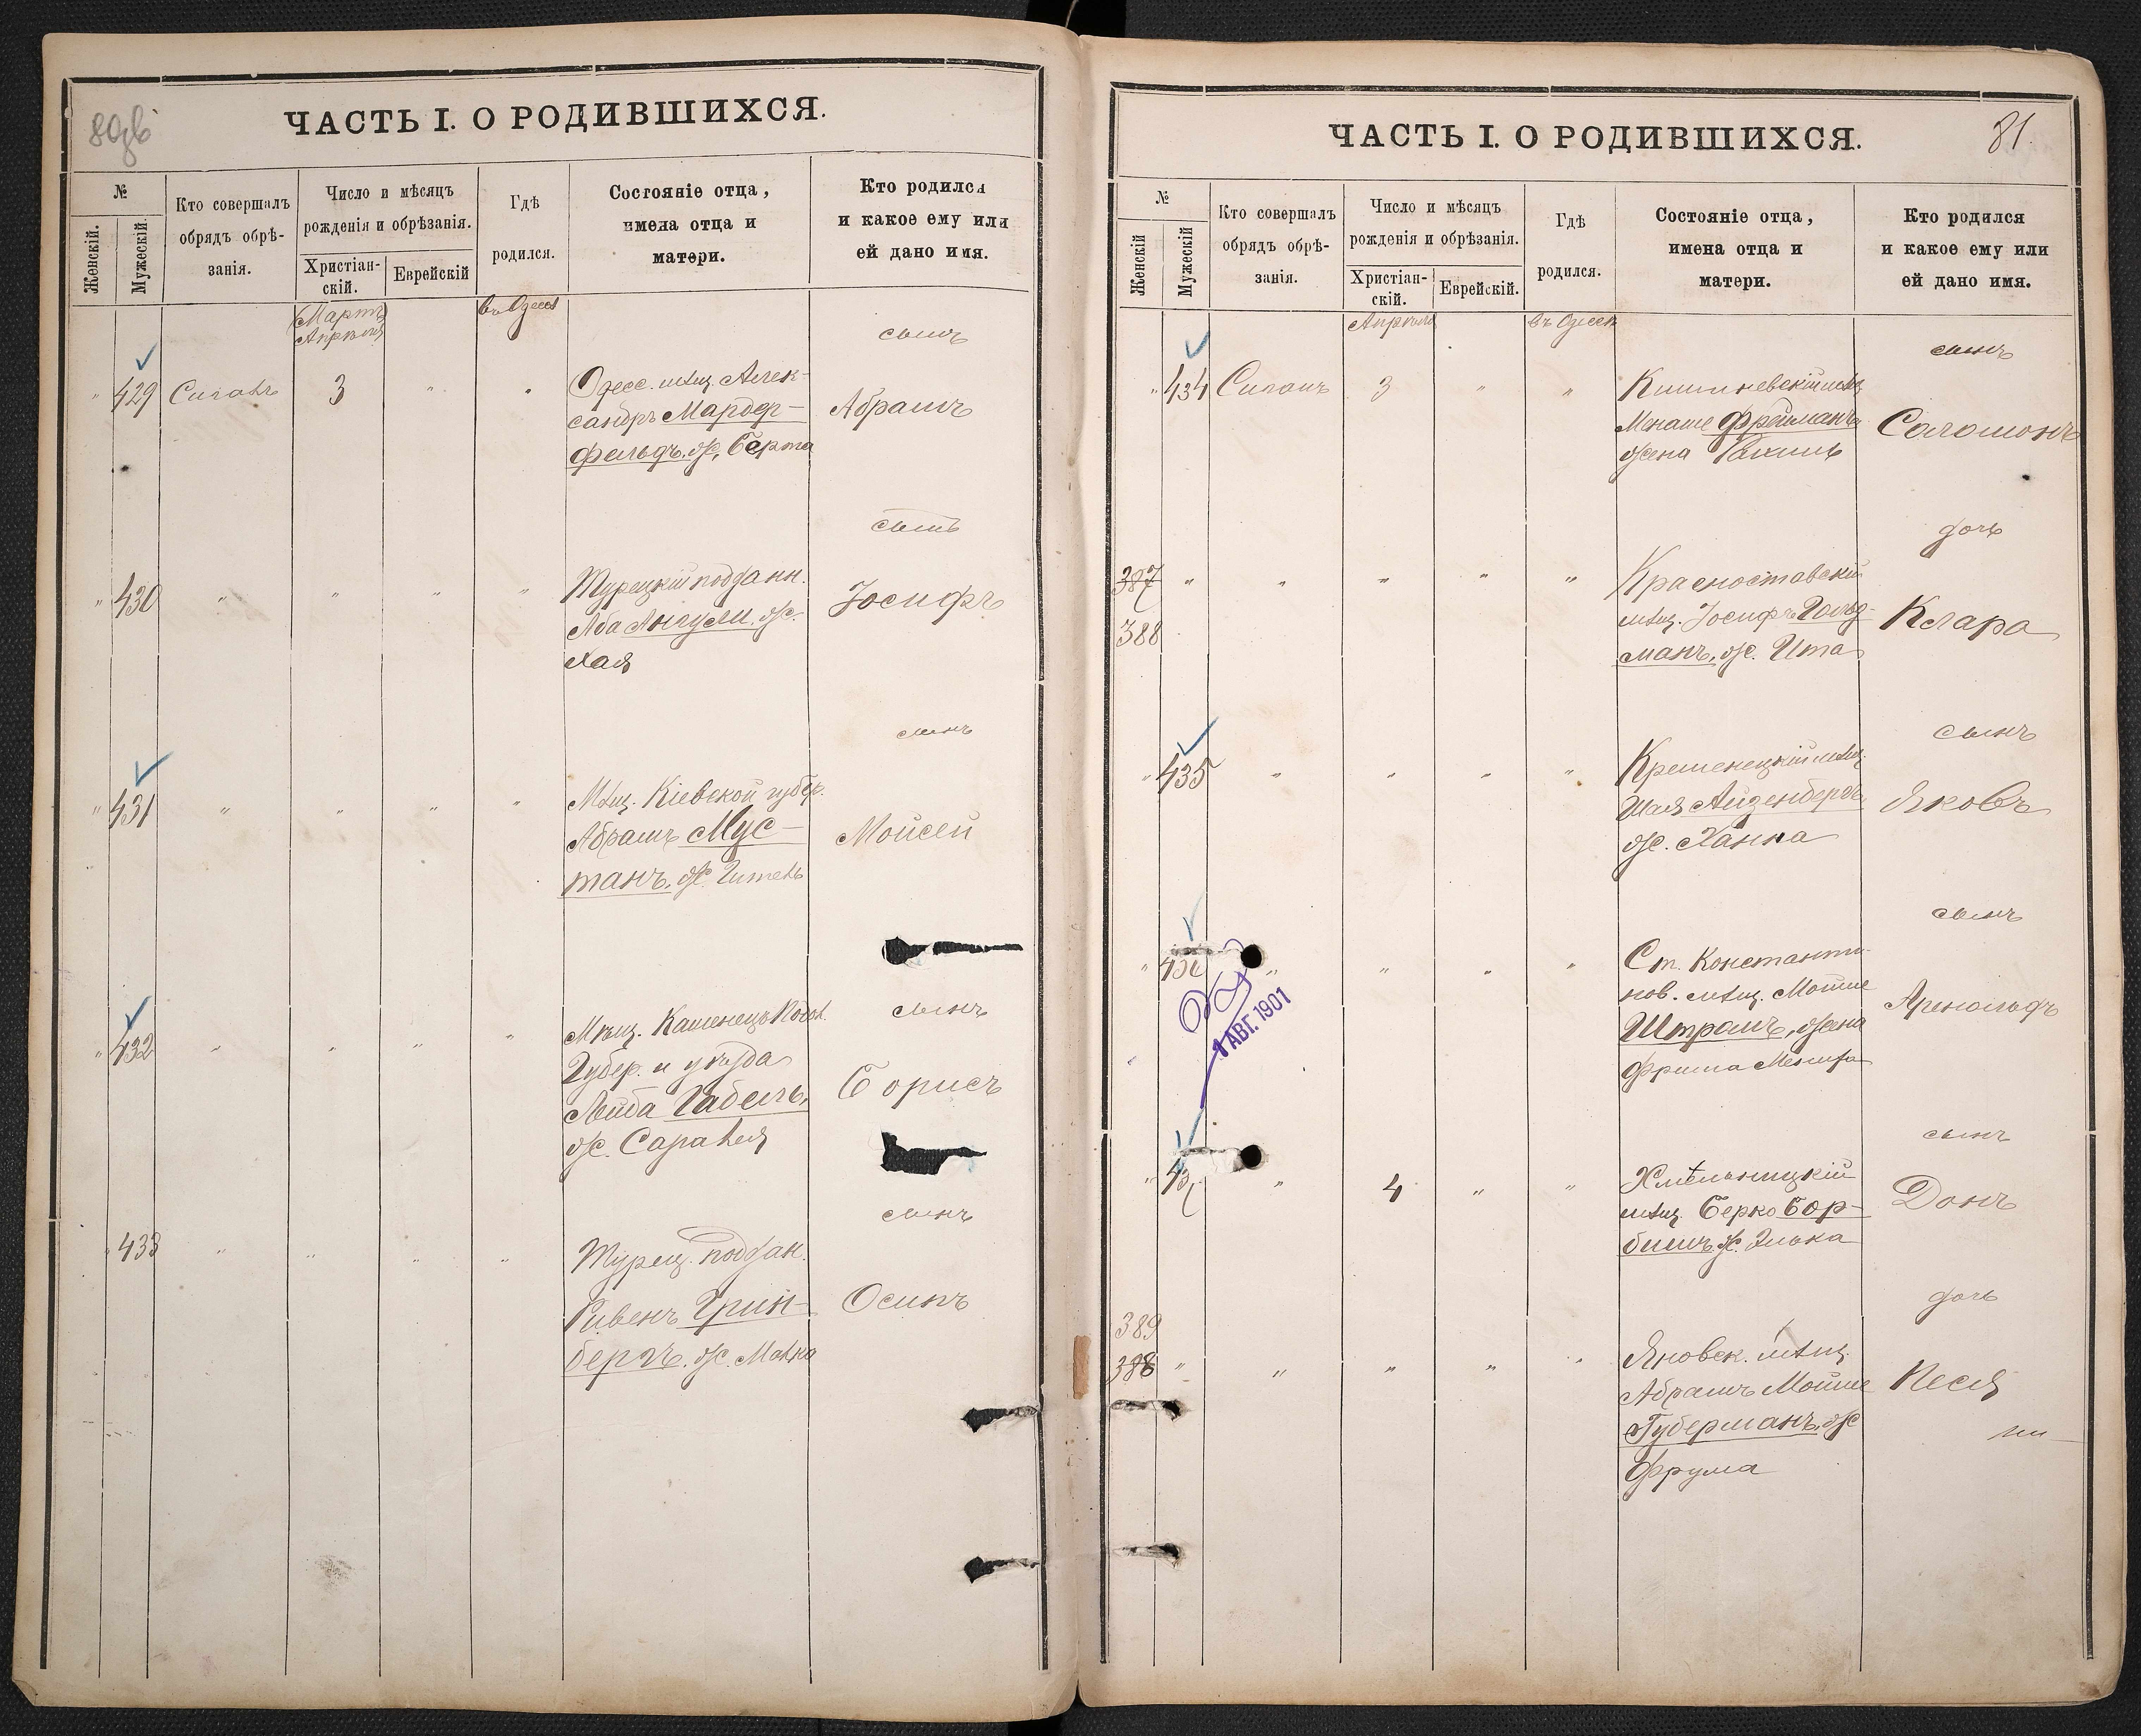 80об
ЧАСТЬ I. О РОДИВШИХСЯ.
№
Женскій.
Мужескій.
Кто совершалъ
обрядъ обрѣ-
занія.
Число и мѣсяцъ
рожденія и обрѣзанія.
Христіан-
скій.
Еврейскій
Гдѣ
родился.
Состояніе отца,
имена отца и
матери.
Кто родился
и какое ему или
ей дано имя.
Мартъ
Апрѣля
въ Одессѣ
сынъ
" 429 Сиганъ 3 " "
Одесс. мѣщ. Алек-
сандръ Мардер-
фельдъ, ж. Берта
Абрамъ
сынъ
" 430 " " " "
Турецкій поддан.
Аба ж.
Хая
Іосифъ
сынъ
" 431 " " " "
Мѣщ. Кіевской губер.
Абрамъ Мус-
танъ, ж.
Мойсей
сынъ
" 432 " " " "
Мѣщ. Каменецъ Подол.
Губер. и уѣзда
Лейба Габель,
ж. Сара Лея
Борисъ
сынъ
" 433 " " " "
Турец. поддан.
Рувенъ Грин-
бергъ, ж. Малка
Осипъ
ЧАСТЬ I. О РОДИВШИХСЯ.
81.
№
Женскій
Мужескій
Кто совершалъ
обрядъ обрѣ-
занія.
Число и мѣсяцъ
рожденія и обрѣзанія.
Христіан-
скій.
Еврейскій.
Гдѣ
родился.
Состояніе отца,
имена отца и
матери.
Кто родился
и какое ему или
ей дано имя.
Апрѣля
въ Одессѣ
сынъ
" 434 Сиганъ 3 " "
Кишиневскій мѣщ.
Менаше Фрейманъ,
жена Рахиль
Соломонъ
дочь
387 " " " " "
388
Красноставскій
мѣщ. Іосифъ Гольд-
манъ, ж. Ита
Клара
сынъ
" 435 " " " "
Кременецкій мѣщ.
Шая Айзенбергъ,
ж. Ханна
Яковъ
сынъ
" 436 " " " "
1 АВГ. 1901
Ст. Константи-
нов. мѣщ. Мойше
Штрамъ, жена
Арнольдъ
сынъ
" 43 " 4 " "
Хмѣльницкій
мѣщ. Берко Бор-
ж. Элька
Донъ
дочь
389
388 " " " " "
Яновск. мѣщ.
Абрамъ Мойше
Губерманъ, ж
Фрума
Песя